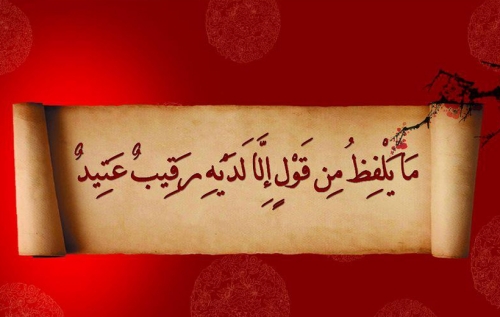 مَا يَلْفِظُ مِن قَوْلٍ إِلَّا لَدَيْهِ رَقِيبٌ عَتِيدٌ